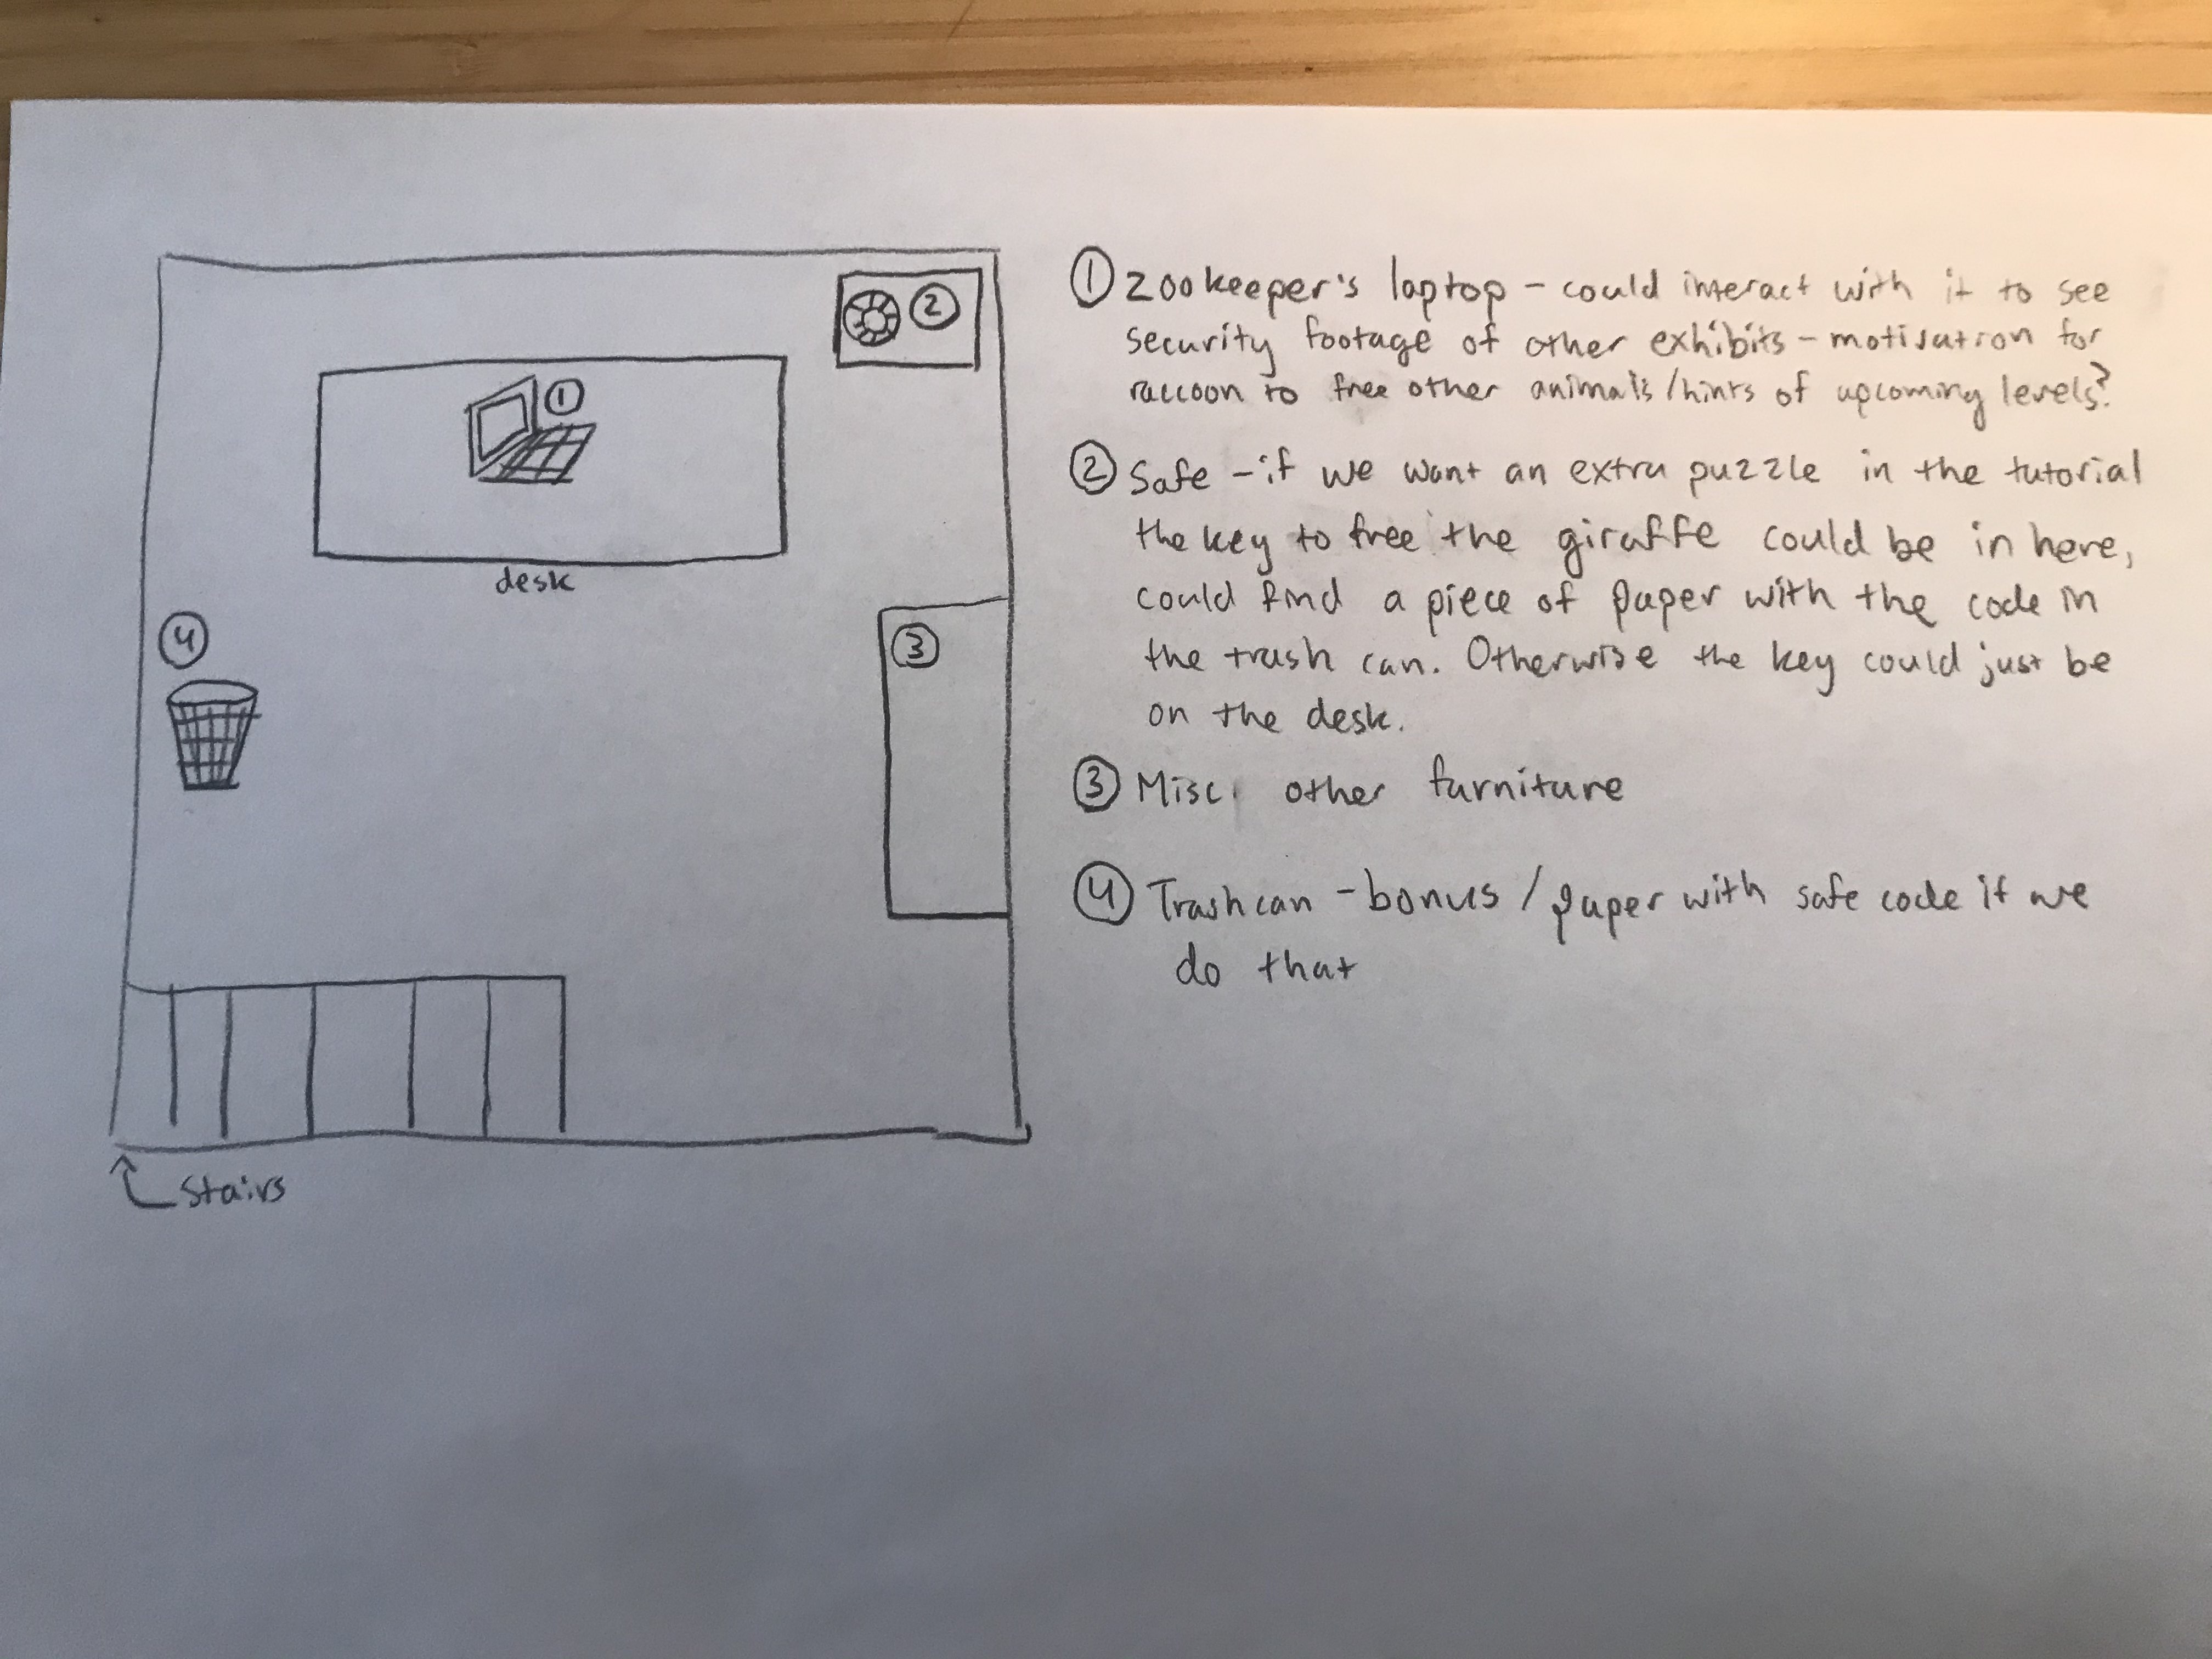 ① zookeeper's laptop - could interact with it to see
security footage of other exhibits - motivation for
raccoon to free other animals/hints of upcoming levels?
② Safe - if we want an extra puzzle in the tutorial
the key to free the giraffe could be in here,
could find a piece of paper with the code in
the trash can. Otherwise the key could just be
on the desk.
③ Misc. other furniture
④ Trashcan - bonus / paper with safe code if we
do that
②
①
desk
④
③
Stairs